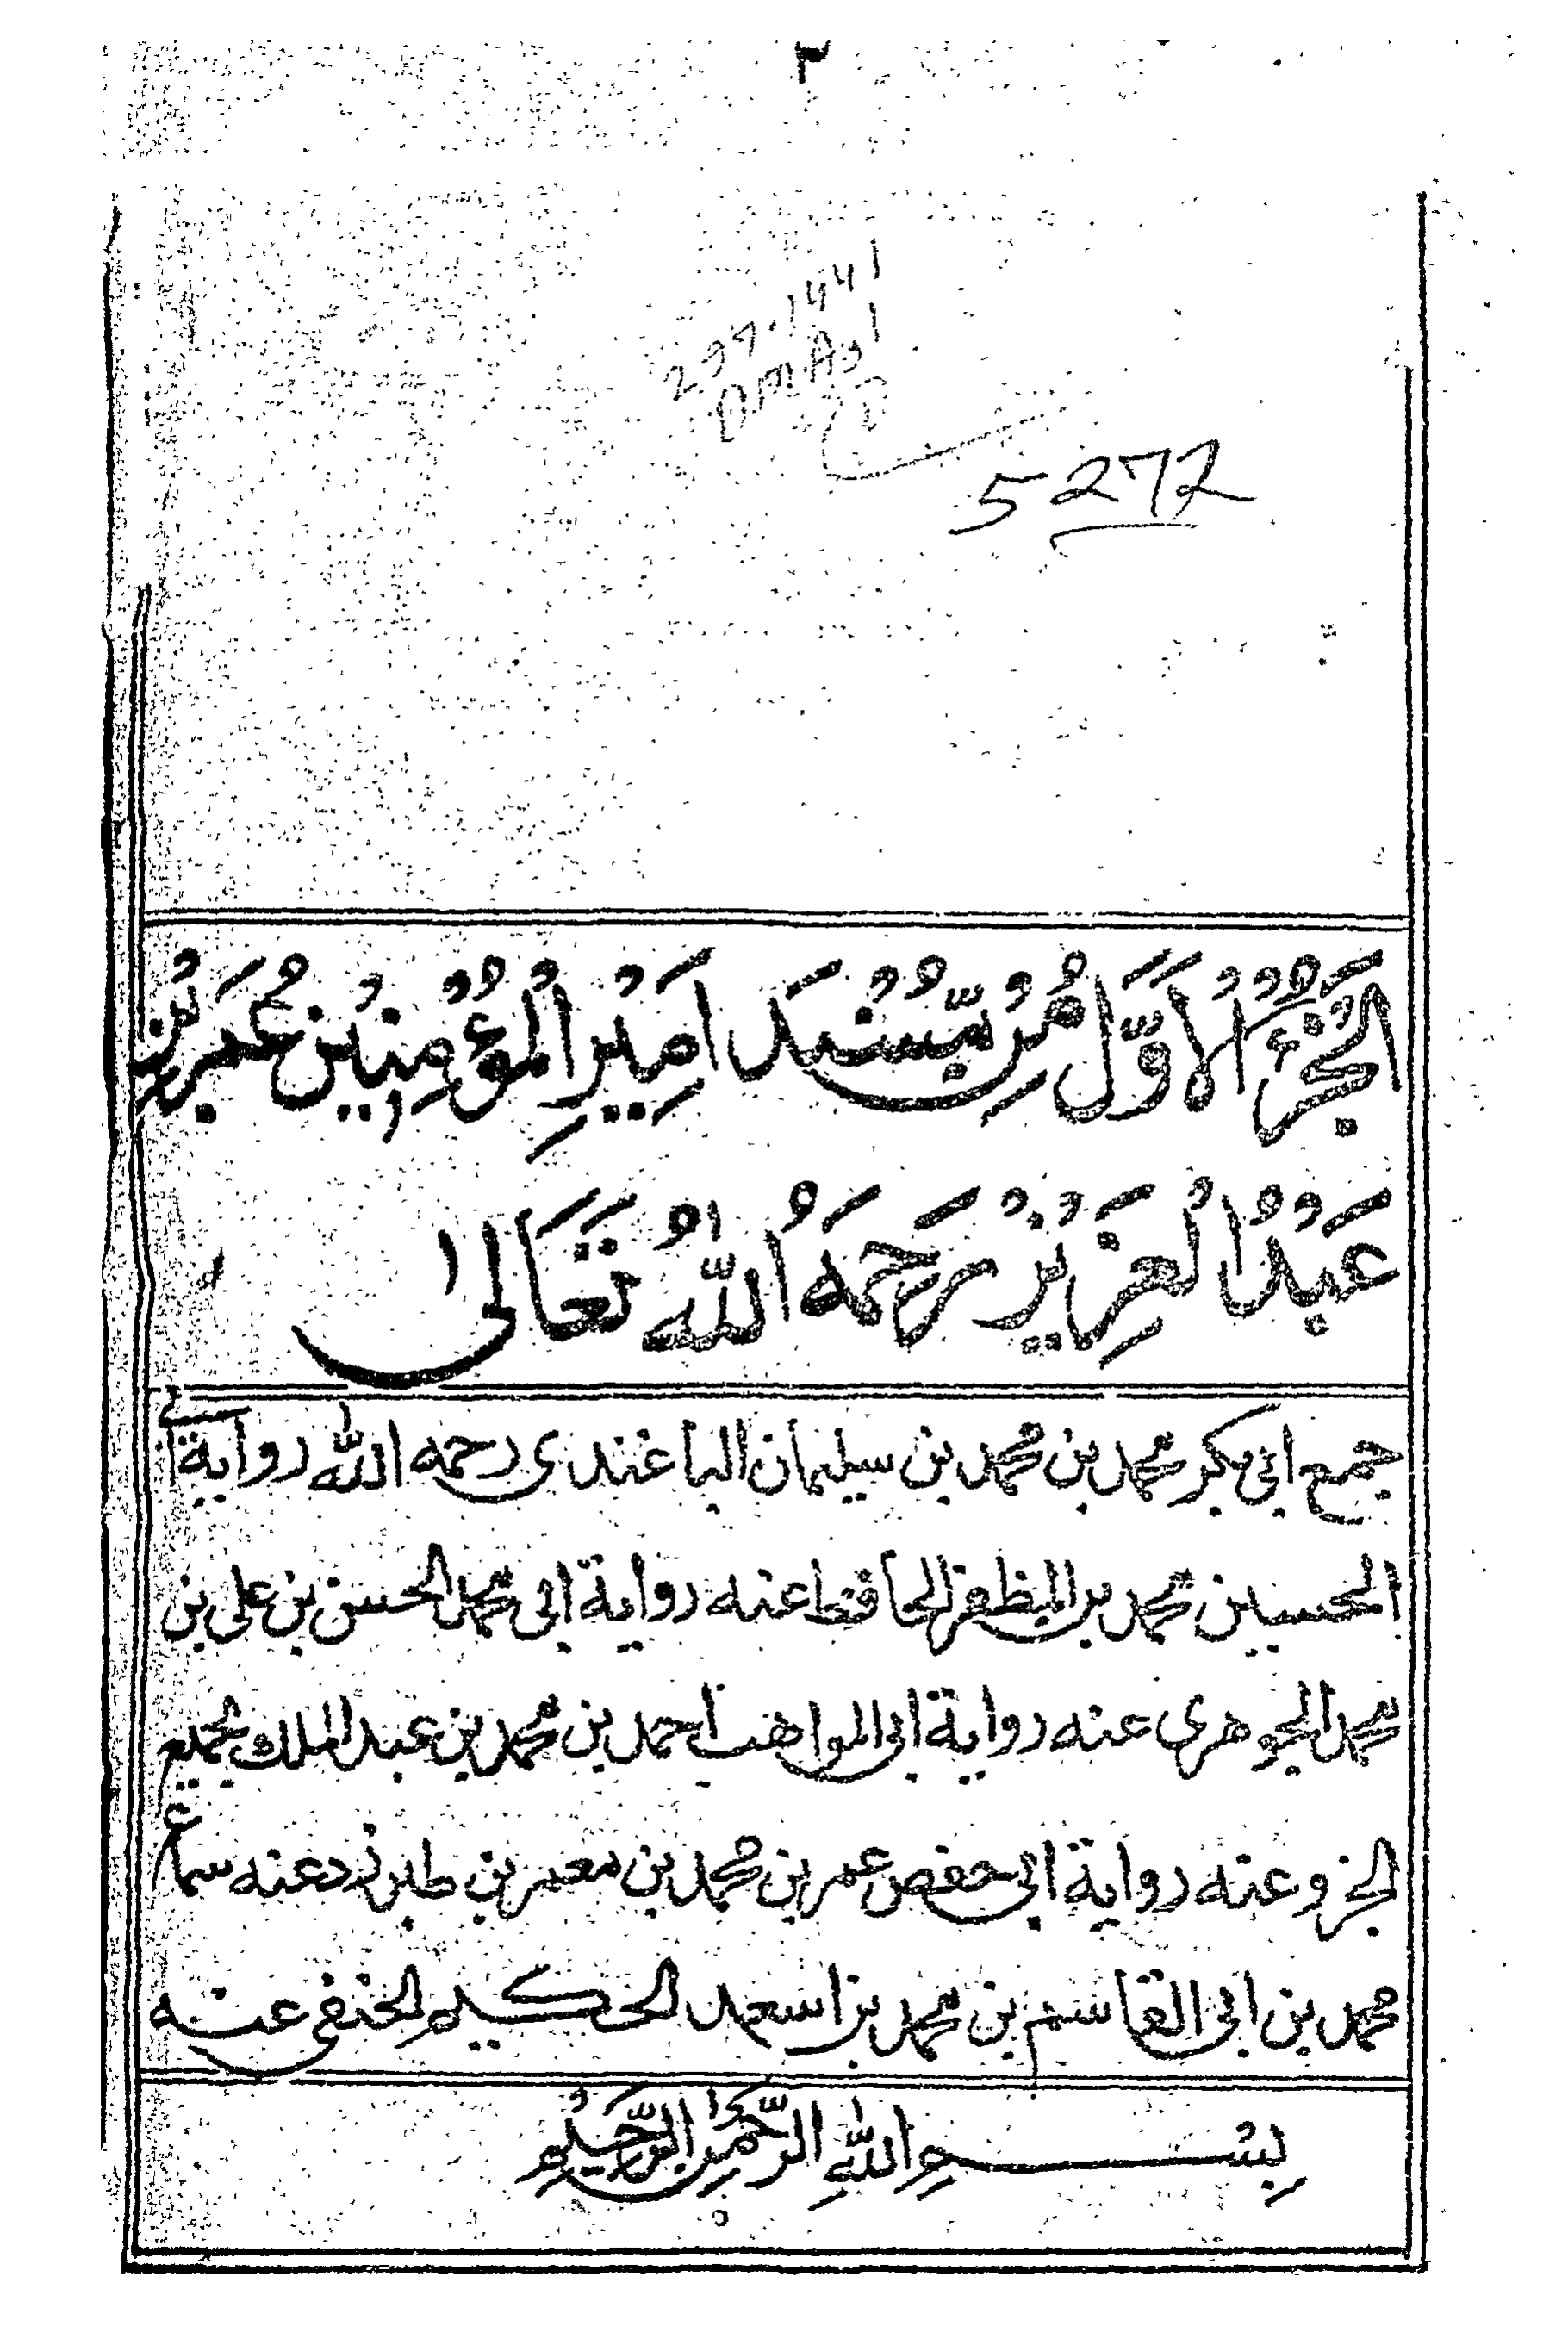 ٣
297.1441
5272
اَلْجُزْءُ الْاَوَّلُ مِنْ مُّسْنَدِ اَمِيْرِ الْمُؤْمِنِيْنَ عُمَرَ بْنِ
عَبْدُ الْعَزِيْزِ رَحِمَهُ اللّٰهُ تَعَالٰى
جمع ابى بكر محمد بن محمد بن سليمان الباغندى رحمه الله رواية ابى
الحسين محمد بن المظفر الحافظ عنه رواية ابى محمد الحسن بن على بن
محمد الجوهرى عنه رواية ابى المواهب احمد بن محمد بن عبد الملك بجميع
الجزو عنه رواية ابى حفص عمر بن محمد بن معمر بن طبرزد عنه سماع
محمد بن ابى القاسم بن محمد بن اسعد الحكيم الحنفى عنه
بِسْمِ اللّٰهِ الرَّحْمٰنِ الرَّحِيْمِ